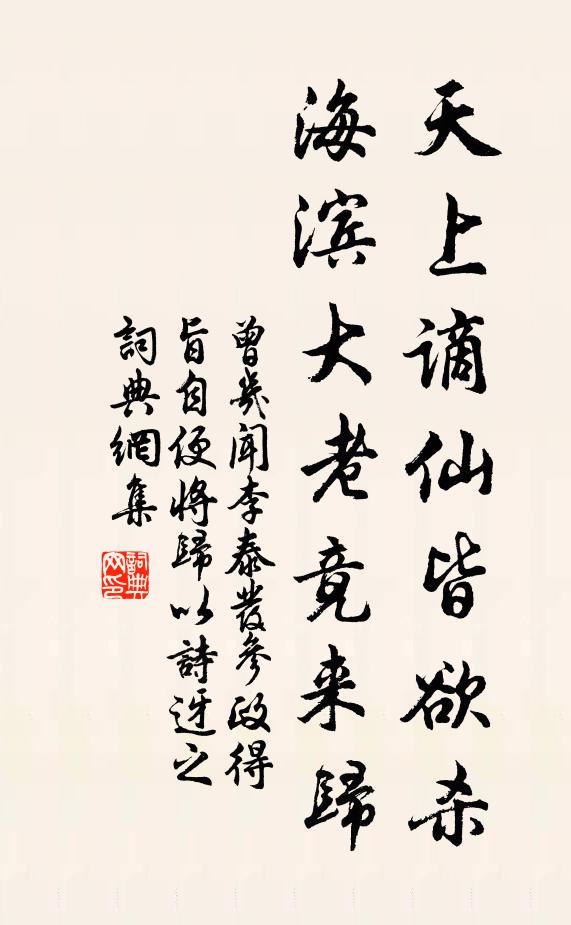 天上谪仙皆欲杀
海滨大老竟来歸
曾幾闻李泰發參政得
旨自便将歸以詩迓之
詞典網集
詞典网印